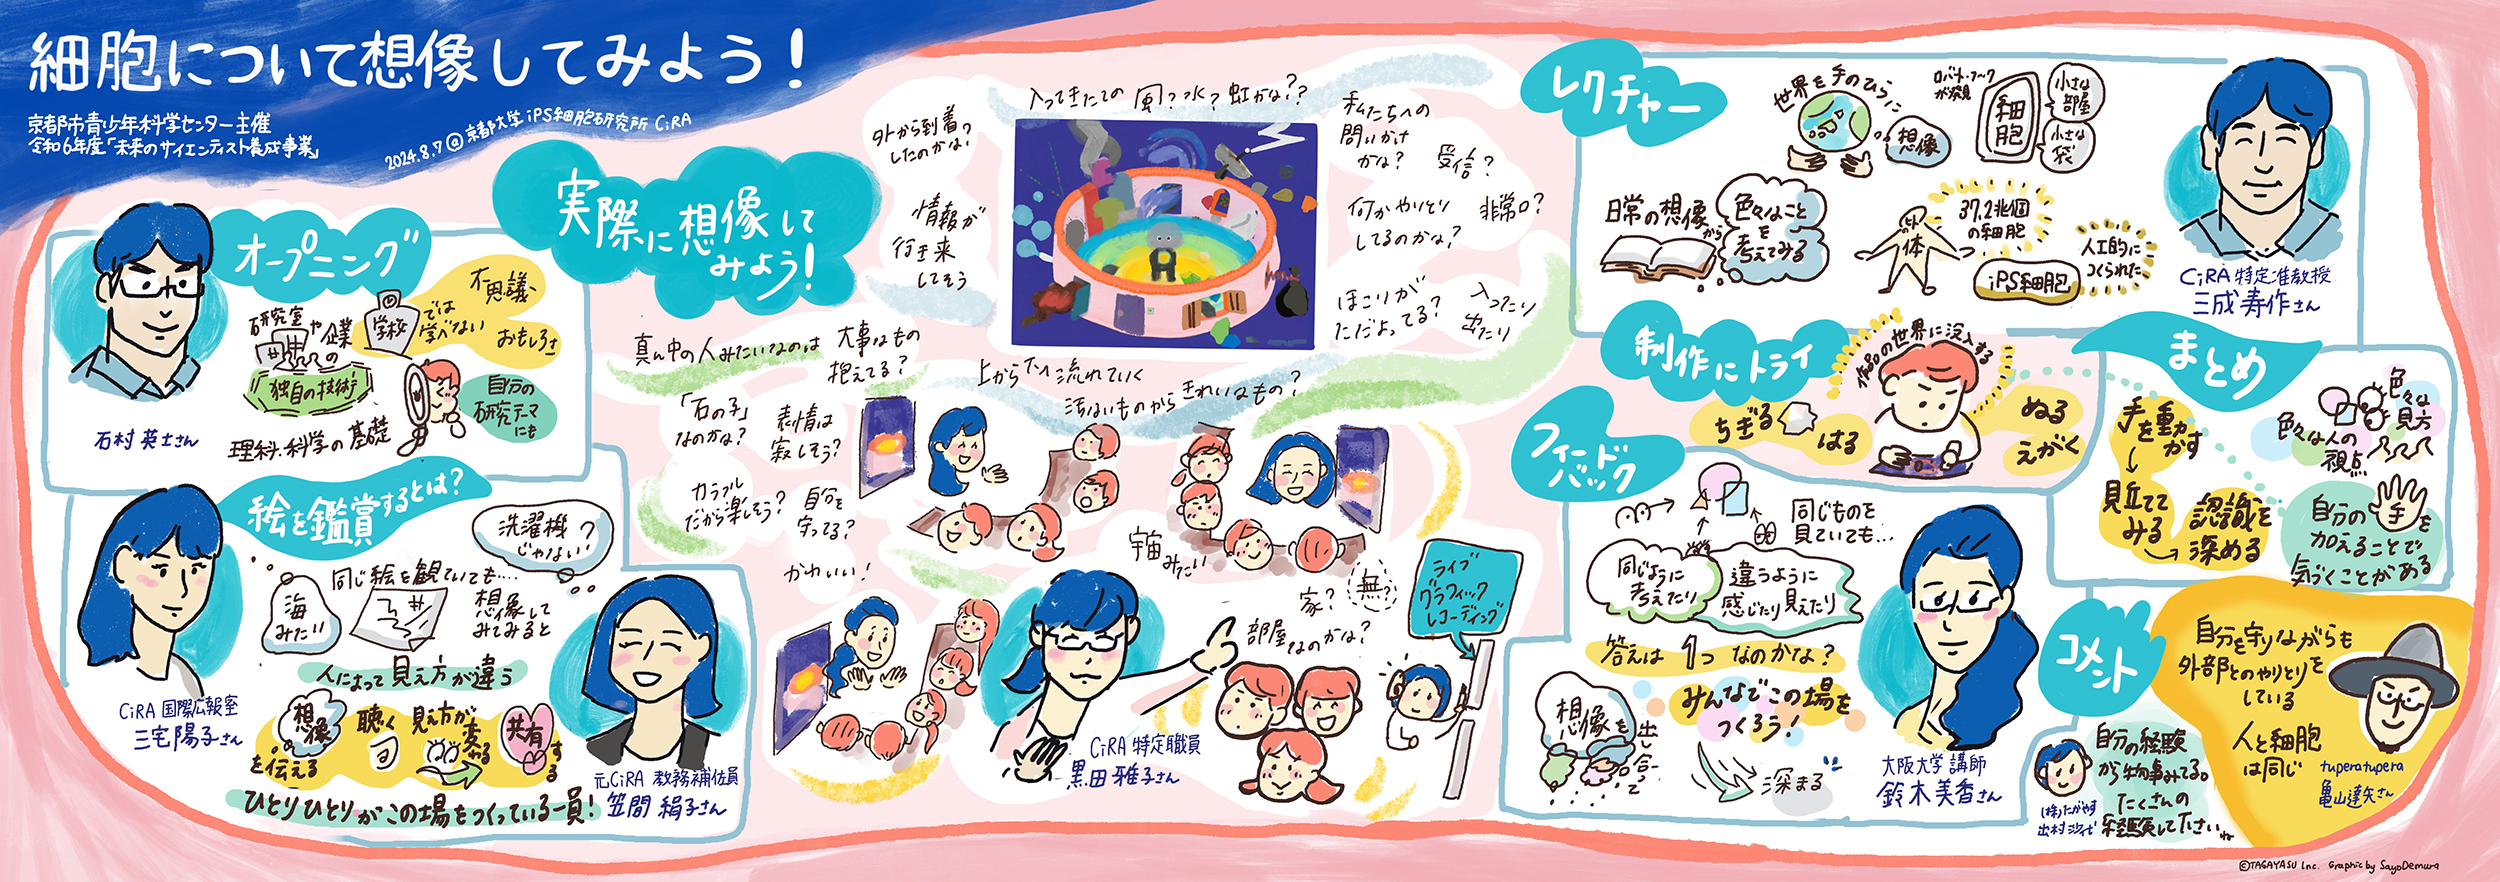 細胞について想像してみよう！
京都市青少年科学センター主催
令和6年度「未来のサイエンティスト養成事業」
2024.8.7@京都大学iPS細胞研究所 CiRA
オープニング
研究室や企業
独自の技術
学校
では
学べない
不思議、
おもしろさ
自分の
研究テーマ
にも
理科・科学の基礎
石村 英士さん
絵を鑑賞するとは？
洗濯機
じゃない？
同じ絵を観ていても‥‥
海
みたい
想像して
みてみると
人によって見え方が違う
想像
を伝える
聴く
見え方が
変わる
共有
する
ひとりひとりがこの場をつくっている一員！
CiRA 国際広報室
三宅陽子さん
元CiRA 教務補佐員
笠間 絹子さん
実際に想像して
みよう！
外から到着
したのかな？
情報が
行き来
してそう
入ってきたての 風？水？虹かな？？
私たちへの
問いかけ
かな？
受信？
何かやりとり
してるのかな？
非常口？
ほこりが
ただよってる？
入ったり
出たり
真ん中の人みたいなのは
大事なもの
抱えてる？
上から下へ流れていく
汚ないものからきれいなもの？
「石の子」
なのかな？
表情は
寂しそう？
カラフル
だから楽しそう？
自分を
守ってる？
かわいい！
宇宙みたい
無？
家？
部屋なのかな？
ライブ
グラフィック
レコーディング
CiRA 特定職員
黒田 雅子さん
レクチャー
世界を手のひらに
想像
ロバート・フック
が発見
細胞
小さな
部屋
小さな
袋
日常の想像
から
色々なこと
を
考えてみる
体
37.2兆個
の細胞
人工的に
つくられた
iPS細胞
CiRA 特定准教授
三成寿作さん
制作にトライ
作品の世界に没入する
ちぎる
はる
ぬる
えがく
フィード
バック
同じものを
見ていても…
同じように
考えたり
違うように
感じたり見えたり
答えは1つなのかな？
想像を
出し合って
みんなでこの場を
つくろう！
深まる
大阪大学 講師
鈴木美香さん
まとめ
手を動かす
見立てて
みる
認識を
深める
色々な
見方
色々な人の
視点
自分の手を
加えることで
気づくことがある
コメント
自分を守りながらも
外部とのやりとりを
している
人と細胞
は同じ
tupera tupera
亀山達矢さん
自分の経験
が物事みてる。
たくさんの
経験して下さいね
(株)たがやす
出村沙代
©TAGAYASU Inc. Graphic by SayoDemura